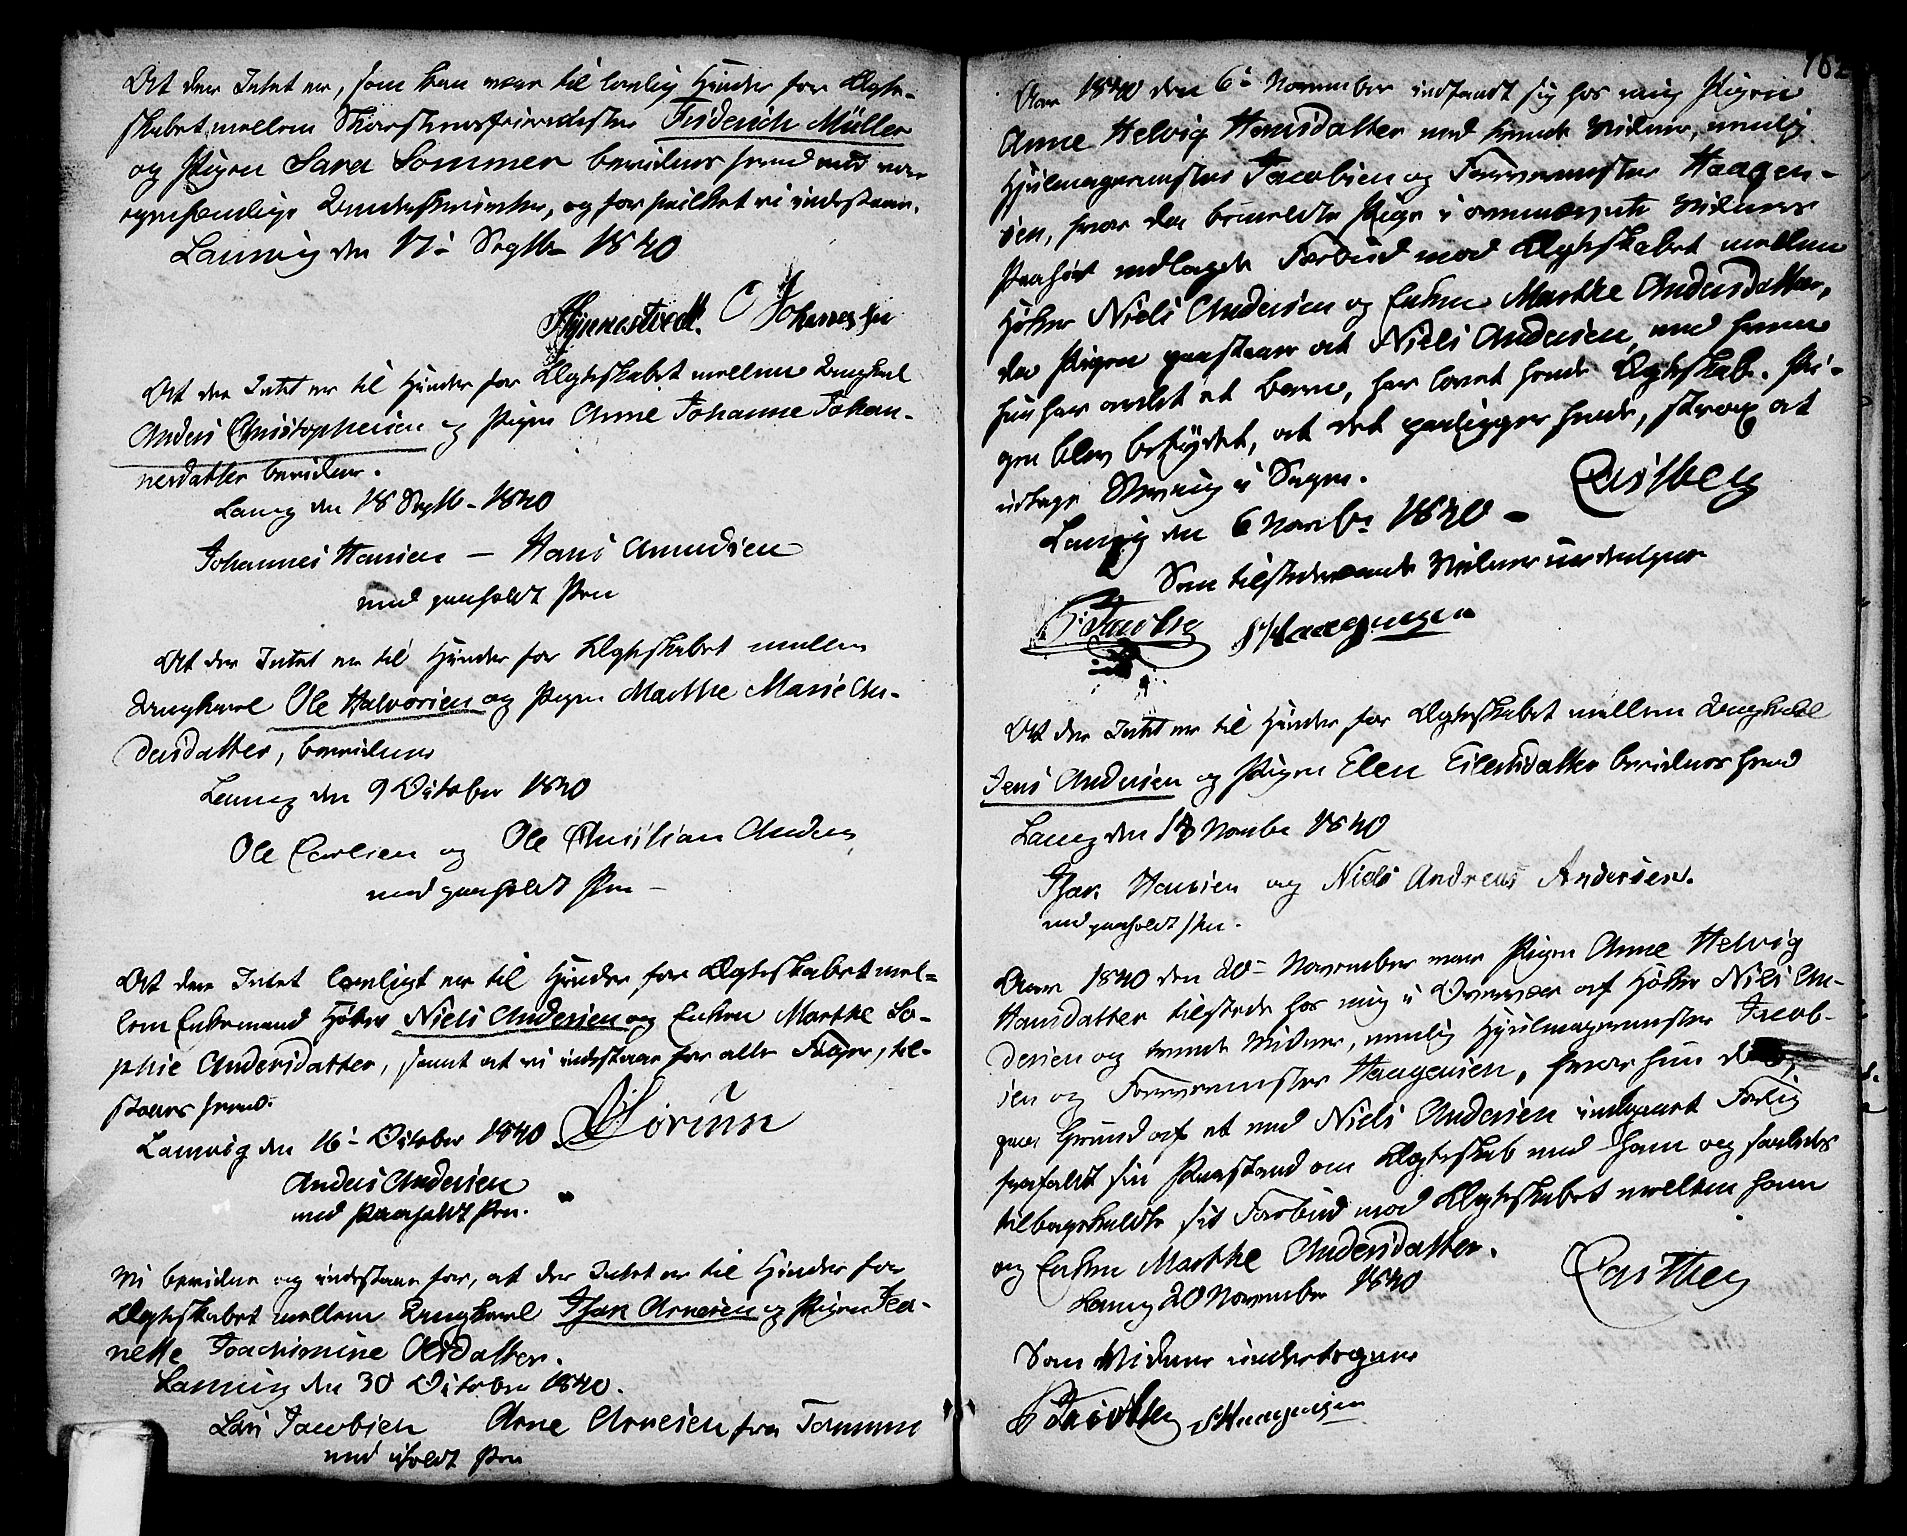 At der Intet er, som kan være til lovlig Hinder for Ægte-
skabet mellem Skorsteensfeiermester Friderich Müller
og Pigen Sara Sommer bevidnes herved med vor
egenhændige Underskrifter, og for hvilket vi indestaae.
Laurvig den 17de Septb. 1840
Johannesen
At der Intet er til Hinder for Ægteskabet mellem Ungkarl
Anders Christophersen og Pigen Anne Johanne Johan-
nesdatter bevidner.
Laurvig den 18 Septb. 1840
Johannes Hansen — Hans Amundsen
med paaholdt Pen
At der Intet er til Hinder for Ægteskabet mellem
Ungkarl Ole Halvorsen og Pigen Marthe Marie An-
dersdatter, bevidnes
Laurvig den 9 October 1840
Ole Carlsen og Ole Christian Anders
med paaholdt Pen —
At der Intet lovligt er til Hinder for Ægteskabet mel-
lem Enkemand Høker Niels Andersen og Enken Marthe So-
phie Andersdatter, samt at vi indestaae for alle Følger, til-
staaes herved.
Laurvig den 16de October 1840
Anders Andersen
med Paaholdt Pen.
Vi bevidne og indestaae for, at der Intet er til Hinder for
Ægteskabet mellem Ungkarl Isak Arnesen og Pigen Jea-
nette Joachimine Olsdatter.
Laurvig den 30 October 1840.
Lars Jacobsen Arne Arnesen fra
med iholdt Pen
162
Aar 1840 den 6te November indfandt sig hos mig Pigen
Anne Helvig Hansdatter med tvende Vidner, nemlig
Hjulmagermester Jacobsen og Farvermester Haagen-
sen, hvor da bemeldte Pige i ommeldte Vidners
Paahør nedlagde Forbud mod Ægteskabet mellem
Høker Niels Andersen og Enken Marthe Andersdatter,
da Pigen paastaar at Niels Andersen, med hvem
hun har avlet et Barn, har lovet hende Ægteskab. Pi-
gen blev betydet, at det paaligger hende, strax at
udtage Stevning i Sagen.
Laurvig den 6 Novbr 1840 — Castberg
Som tilstedeværende Vidner undertegner
Jacobsen Haagensen
At der Intet er til Hinder for Ægteskabet mellem Ungkarl
Jens Andersen og Pigen Elen Eilertsdatter bevidnes herved
Laurvig den 13 Novbr 1840
Isac Hansen og Niels Andreas Andersen.
med paaholdt Pen.
Aar 1840 den 20de November var Pigen Anne Helvig
Hansdatter tilstede hos mig i Overvær af Høker Niels An-
dersen og tvende Vidner, nemlig Hjulmagermester Jacob-
sen og Farvermester Haagensen, hvor hun
paa Grund af et med Niels Andersen indgaaet Forlig
frafaldt sin Paastand om Ægteskab med ham og saaledes
tilbagekaldte sit Forbud mod Ægteskabet mellem ham
og Enken Marthe Andersdatter.
Laurvig 20 November 1840 Castberg
Som Vidner undertegner
Jacobsen Haagensen